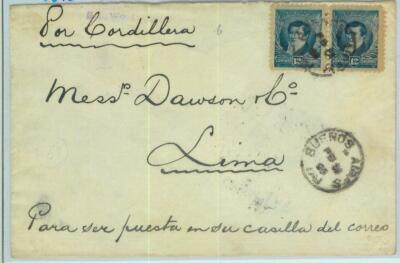 Por Cordillera
6
12 12
Messrs Dawson & Co
Lima
BUENOS AIRES
Para ser puesta en su casilla del correo